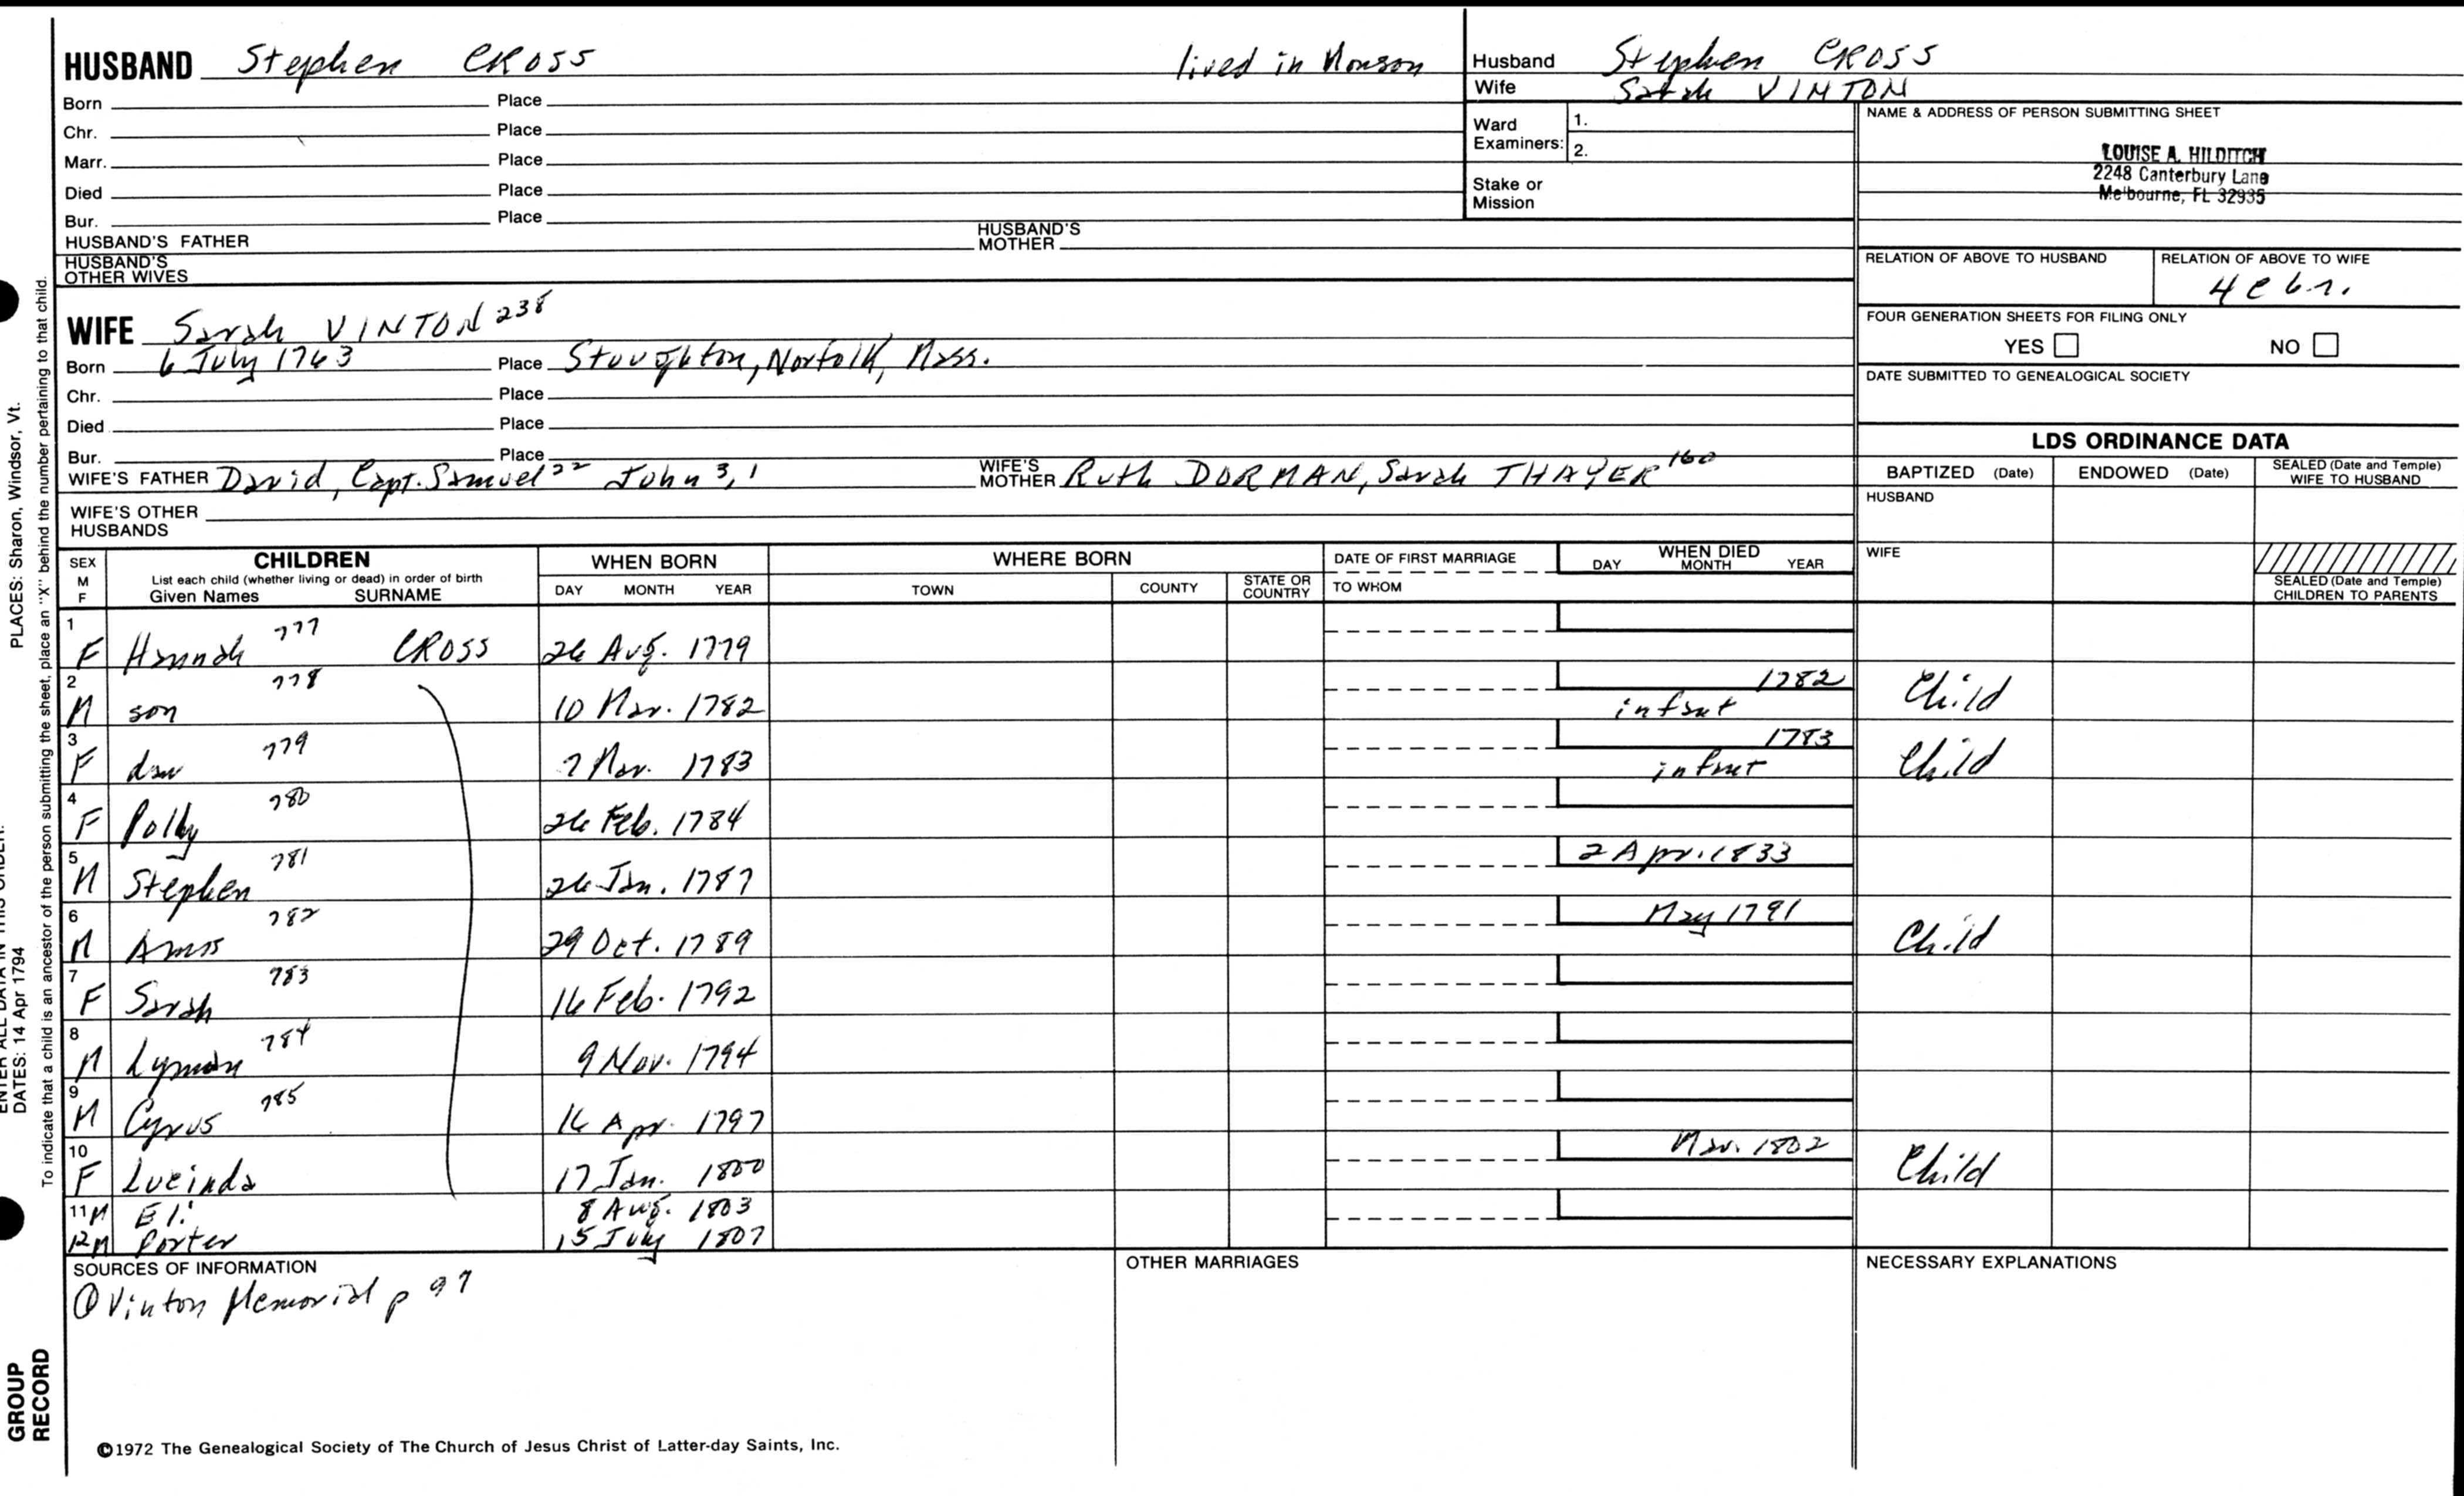 HUSBAND Stephen CROSS lived in Monson
Born Place
Chr. Place
Marr. Place
Died Place
Bur. Place
HUSBAND'S FATHER HUSBAND'S MOTHER
HUSBAND'S OTHER WIVES
Husband Stephen CROSS
Wife Sarah VINTON
Ward Examiners: 1.
2.
Stake or Mission
NAME & ADDRESS OF PERSON SUBMITTING SHEET
LOUISE A. HILDITCH
2248 Canterbury Lane
Melbourne, FL 32935
RELATION OF ABOVE TO HUSBAND RELATION OF ABOVE TO WIFE
4 c 6 r.
FOUR GENERATION SHEETS FOR FILING ONLY
YES NO
DATE SUBMITTED TO GENEALOGICAL SOCIETY
WIFE Sarah VINTON 238
Born 6 July 1763 Place Stoughton, Norfolk, Mass.
Chr. Place
Died Place
Bur. Place
WIFE'S FATHER David, Capt. Samuel 22 John 3, 1 WIFE'S MOTHER Ruth DORMAN, Sarah THAYER 160
WIFE'S OTHER HUSBANDS
LDS ORDINANCE DATA
BAPTIZED (Date) ENDOWED (Date) SEALED (Date and Temple) WIFE TO HUSBAND
HUSBAND
WIFE
SEALED (Date and Temple) CHILDREN TO PARENTS
SEX M F CHILDREN List each child (whether living or dead) in order of birth Given Names SURNAME WHEN BORN DAY MONTH YEAR WHERE BORN TOWN COUNTY STATE OR COUNTRY DATE OF FIRST MARRIAGE TO WHOM WHEN DIED DAY MONTH YEAR
1 F Hannah 777 CROSS 26 Aug. 1779
2 M son 778 10 Mar. 1782 1782 infant Child
3 F dau 779 7 Mar. 1783 1783 infant Child
4 F Polly 780 26 Feb. 1784
5 M Stephen 781 26 Jan. 1787 2 Apr. 1833
6 M Amos 782 29 Oct. 1789 May 1791 Child
7 F Sarah 783 16 Feb. 1792
8 M Lyman 784 9 Nov. 1794
9 M Cyrus 785 16 Apr. 1797
10 F Lucinda 17 Jan. 1800 Mar. 1802 Child
11 M Eli 8 Aug. 1803
12 M Porter 15 July 1807
SOURCES OF INFORMATION
① Vinton Memorial p 97
OTHER MARRIAGES
NECESSARY EXPLANATIONS
©1972 The Genealogical Society of The Church of Jesus Christ of Latter-day Saints, Inc.
PLACES: Sharon, Windsor, Vt.
DATES: 14 Apr 1794
To indicate that a child is an ancestor of the person submitting the sheet, place an "X" behind the number pertaining to that child.
GROUP
RECORD